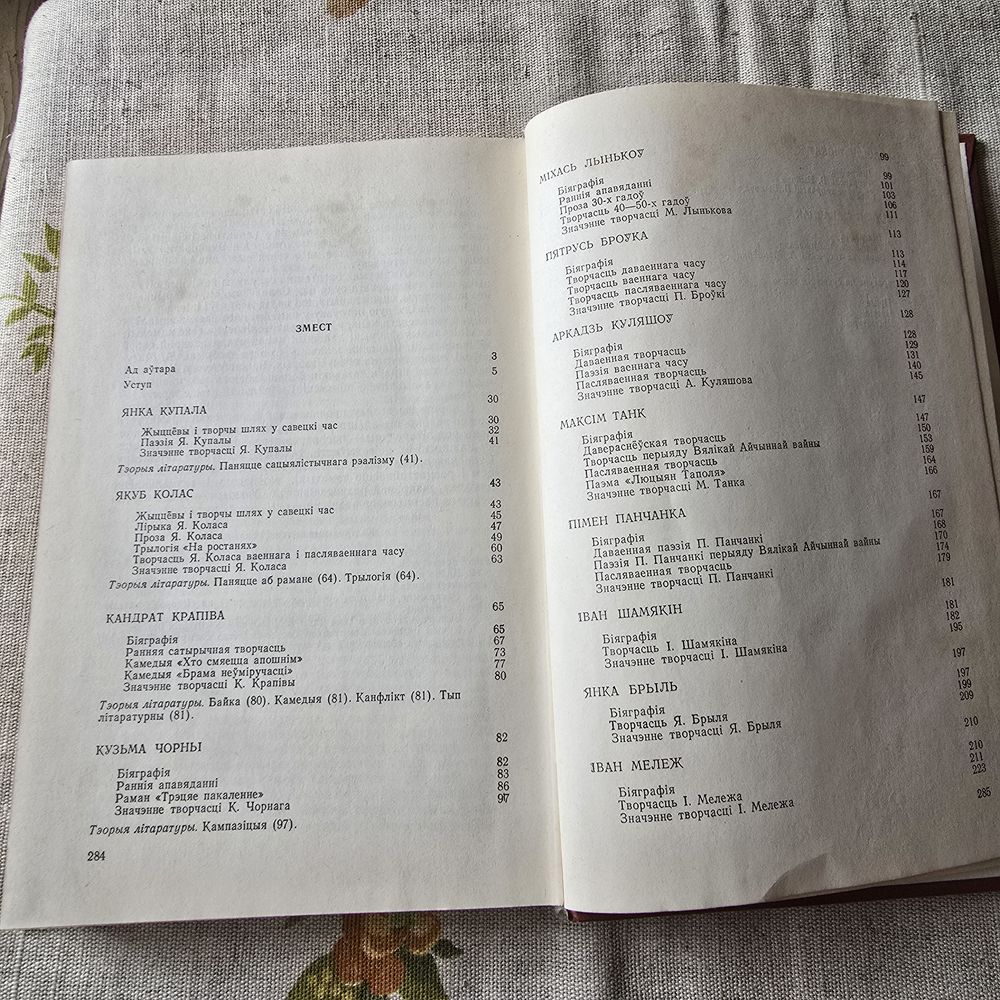 ЗМЕСТ
Ад аўтара 3
Уступ 5
ЯНКА КУПАЛА 30
Жыццёвы і творчы шлях у савецкі час 30
Паэзія Я. Купалы 32
Значэнне творчасці Я. Купалы 41
Тэорыя літаратуры. Паняцце сацыялістычнага рэалізму (41).
ЯКУБ КОЛАС 43
Жыццёвы і творчы шлях у савецкі час 43
Лірыка Я. Коласа 45
Проза Я. Коласа 47
Трылогія «На ростанях» 49
Творчасць Я. Коласа ваеннага і пасляваеннага часу 60
Значэнне творчасці Я. Коласа 63
Тэорыя літаратуры. Паняцце аб рамане (64). Трылогія (64).
КАНДРАТ КРАПІВА 65
Біяграфія 65
Ранняя сатырычная творчасць 67
Камедыя «Хто смяецца апошнім» 73
Камедыя «Брама неўміручасці» 77
Значэнне творчасці К. Крапівы 80
Тэорыя літаратуры. Байка (80). Камедыя (81). Канфлікт (81). Тып
літаратурны (81).
КУЗЬМА ЧОРНЫ 82
Біяграфія 82
Раннія апавяданні 83
Раман «Трэцяе пакаленне» 86
Значэнне творчасці К. Чорнага 97
Тэорыя літаратуры. Кампазіцыя (97).
284
МІХАСЬ ЛЫНЬКОЎ 99
Біяграфія 99
Раннія апавяданні 101
Проза 30-х гадоў 103
Творчасць 40—50-х гадоў 106
Значэнне творчасці М. Лынькова 111
ПЯТРУСЬ БРОЎКА 113
Біяграфія 113
Творчасць даваеннага часу 114
Творчасць ваеннага часу 117
Творчасць пасляваеннага часу 120
Значэнне творчасці П. Броўкі 127
АРКАДЗЬ КУЛЯШОЎ 128
Біяграфія 128
Даваенная творчасць 129
Паэзія ваеннага часу 131
Пасляваенная творчасць 140
Значэнне творчасці А. Куляшова 145
МАКСІМ ТАНК 147
Біяграфія 147
Давераснёўская творчасць 150
Творчасць перыяду Вялікай Айчыннай вайны 153
Пасляваенная творчасць 159
Паэма «Люцыян Таполя» 164
Значэнне творчасці М. Танка 166
ПІМЕН ПАНЧАНКА 167
Біяграфія 167
Даваенная паэзія П. Панчанкі 168
Паэзія П. Панчанкі перыяду Вялікай Айчыннай вайны 170
Пасляваенная творчасць 174
Значэнне творчасці П. Панчанкі 179
ІВАН ШАМЯКІН 181
Біяграфія 181
Творчасць І. Шамякіна 182
Значэнне творчасці І. Шамякіна 195
ЯНКА БРЫЛЬ 197
Біяграфія 197
Творчасць Я. Брыля 199
Значэнне творчасці Я. Брыля 209
ІВАН МЕЛЕЖ 210
Біяграфія 210
Творчасць І. Мележа 211
Значэнне творчасці І. Мележа 223
285